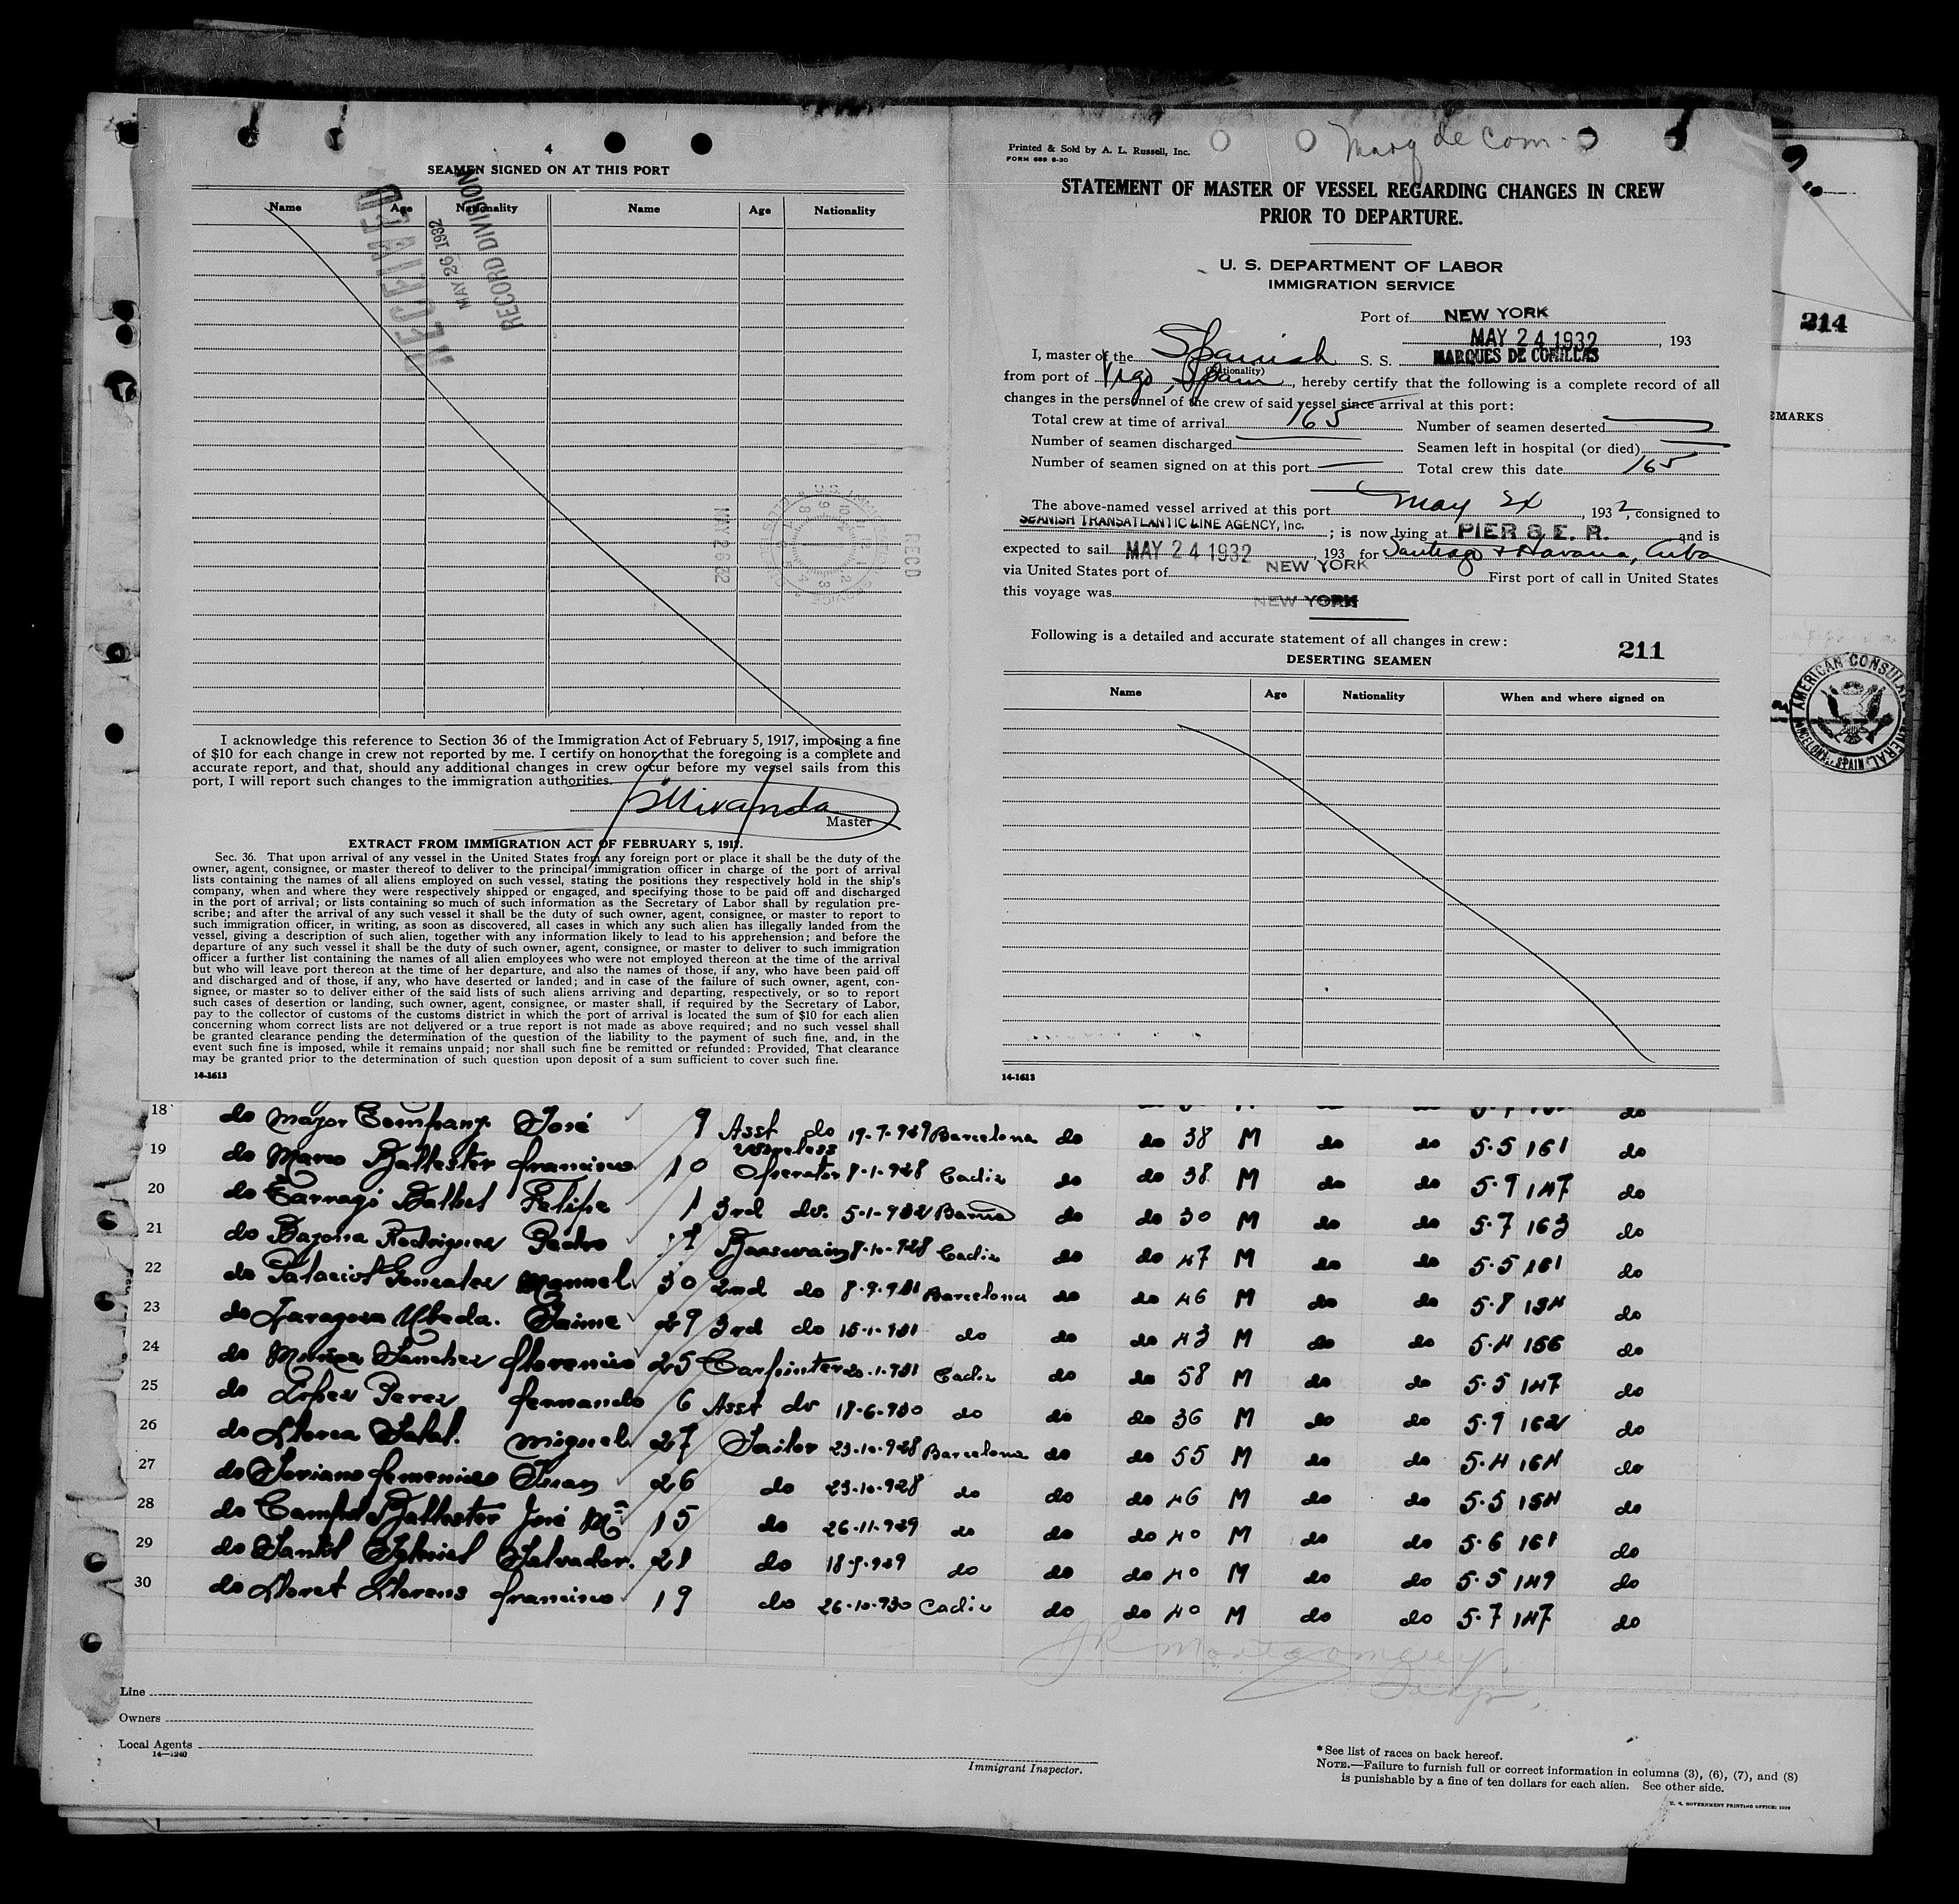 4
SEAMEN SIGNED ON AT THIS PORT
Name Age Nationality Name Age Nationality
RECEIVED
MAY 26 1932
RECORD DIVISION
MAY 26 32
REC'D
I acknowledge this reference to Section 36 of the Immigration Act of February 5, 1917, imposing a fine
of $10 for each change in crew not reported by me. I certify on honor that the foregoing is a complete and
accurate report, and that, should any additional changes in crew occur before my vessel sails from this
port, I will report such changes to the immigration authorities.
Miranda
Master
EXTRACT FROM IMMIGRATION ACT OF FEBRUARY 5, 1917.
Sec. 36. That upon arrival of any vessel in the United States from any foreign port or place it shall be the duty of the
owner, agent, consignee, or master thereof to deliver to the principal immigration officer in charge of the port of arrival
lists containing the names of all aliens employed on such vessel, stating the positions they respectively hold in the ship's
company, when and where they were respectively shipped or engaged, and specifying those to be paid off and discharged
in the port of arrival; or lists containing so much of such information as the Secretary of Labor shall by regulation pre-
scribe; and after the arrival of any such vessel it shall be the duty of such owner, agent, consignee, or master to report to
such immigration officer, in writing, as soon as discovered, all cases in which any such alien has illegally landed from the
vessel, giving a description of such alien, together with any information likely to lead to his apprehension; and before the
departure of any such vessel it shall be the duty of such owner, agent, consignee, or master to deliver to such immigration
officer a further list containing the names of all alien employees who were not employed thereon at the time of the arrival
but who will leave port thereon at the time of her departure, and also the names of those, if any, who have been paid off
and discharged and of those, if any, who have deserted or landed; and in case of the failure of such owner, agent, con-
signee, or master so to deliver either of the said lists of such aliens arriving and departing, respectively, or so to report
such cases of desertion or landing, such owner, agent, consignee, or master shall, if required by the Secretary of Labor,
pay to the collector of customs of the customs district in which the port of arrival is located the sum of $10 for each alien
concerning whom correct lists are not delivered or a true report is not made as above required; and no such vessel shall
be granted clearance pending the determination of the question of the liability to the payment of such fine, and, in the
event such fine is imposed, while it remains unpaid; nor shall such fine be remitted or refunded: Provided, That clearance
may be granted prior to the determination of such question upon deposit of a sum sufficient to cover such fine.
14-1613
Marq de Com
Printed & Sold by A. L. Russell, Inc.
FORM 689 6-30
STATEMENT OF MASTER OF VESSEL REGARDING CHANGES IN CREW
PRIOR TO DEPARTURE.
U. S. DEPARTMENT OF LABOR
IMMIGRATION SERVICE
Port of NEW YORK
MAY 24 1932, 193
I, master of the Spanish S. S. MARQUES DE COMILLAS
(Nationality)
from port of Vigo, Spain, hereby certify that the following is a complete record of all
changes in the personnel of the crew of said vessel since arrival at this port:
Total crew at time of arrival 165 Number of seamen deserted
Number of seamen discharged Seamen left in hospital (or died)
Number of seamen signed on at this port Total crew this date 165
The above-named vessel arrived at this port May 24, 1932, consigned to
SPANISH TRANSATLANTIC LINE AGENCY, Inc.; is now lying at PIER 8 E. R. and is
expected to sail MAY 24 1932, 193 for Santiago & Havana, Cuba
via United States port of NEW YORK First port of call in United States
this voyage was NEW YORK
Following is a detailed and accurate statement of all changes in crew:
211
DESERTING SEAMEN
Name Age Nationality When and where signed on
14-1613
214
EMARKS
AMERICAN CONSULATE GENERAL
BARCELONA, SPAIN
18 do Major Company José 9 Asst do 19-7-929 Barcelona do do 38 M do do 5-5 161 do
19 do Marco Ballester francisco 10 Wireless Operator 8-1-928 Cadiz do do 38 M do do 5-9 147 do
20 do Balbel Felipe 1 3rd do 5-1-932 do do 30 M do do 5-7 163 do
21 do Rodriguez Pedro 8-10-928 Cadiz do do 47 M do do 5-5 161 do
22 do Palacios Gonzalez Manuel 30 2nd do 8-9-931 Barcelona do do 46 M do do 5-8 154 do
23 do Zaragoza Ubeda. Jaime 29 3rd do 15-1-931 do do do 43 M do do 5-4 156 do
24 do Muñoz Sanchez florencio 25 Carpinter 20-1-931 Cadiz do do 58 M do do 5-5 147 do
25 do Lopez Perez fernando 6 Asst do 18-6-930 do do do 36 M do do 5-9 162 do
26 do Llorca miguel 27 Sailor 23-10-928 Barcelona do do 55 M do do 5-4 164 do
27 do Soriano femenias Juan 26 do 23-10-928 do do do 46 M do do 5-5 154 do
28 do Ballester José Mª 15 do 26-11-929 do do do 40 M do do 5-6 161 do
29 do Salvador. 21 do 18-9-929 do do do 40 M do do 5-5 149 do
30 do Lloret Llorens francisco 19 do 26-10-930 Cadiz do do 40 M do do 5-7 147 do
J R Montgomery
Line
Owners
Local Agents
14-1240
Immigrant Inspector.
* See list of races on back hereof.
NOTE.—Failure to furnish full or correct information in columns (3), (6), (7), and (8)
is punishable by a fine of ten dollars for each alien. See other side.
U. S. GOVERNMENT PRINTING OFFICE: 1929